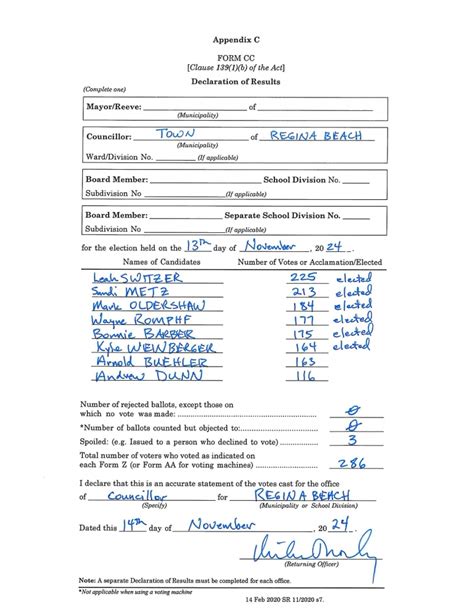 Appendix C
FORM CC
[Clause 139(1)(b) of the Act]
Declaration of Results
(Complete one)
Mayor/Reeve: of
(Municipality)
Councillor: TOWN of REGINA BEACH
(Municipality)
Ward/Division No. (If applicable)
Board Member: School Division No.
Subdivision No (If applicable)
Board Member: Separate School Division No.
Subdivision No. (If applicable)
for the election held on the 13th day of November, 2024.
Names of Candidates Number of Votes or Acclamation/Elected
Leah SWITZER 225 elected
Sandi METZ 213 elected
Mark OLDERSHAW 184 elected
Wayne ROMPHF 177 elected
Bonnie BARBER 175 elected
Kyle WEINBERGER 164 elected
Arnold BUEHLER 163
Andrew DUNN 116
Number of rejected ballots, except those on
which no vote was made: 0
*Number of ballots counted but objected to: 0
Spoiled: (e.g. Issued to a person who declined to vote) 3
Total number of voters who voted as indicated on
each Form Z (or Form AA for voting machines) 286
I declare that this is an accurate statement of the votes cast for the office
of Councillor for REGINA BEACH
(Specify) (Municipality or School Division)
Dated this 14th day of November, 2024.
(Returning Officer)
Note: A separate Declaration of Results must be completed for each office.
*Not applicable when using a voting machine
14 Feb 2020 SR 11/2020 s7.